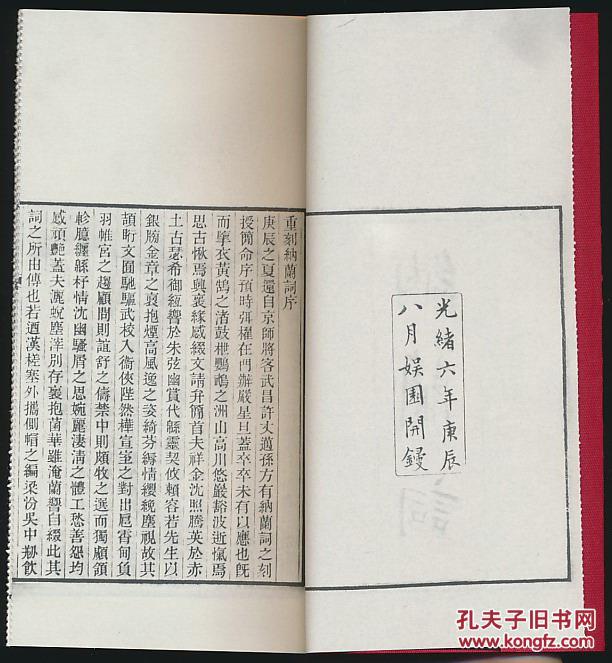 光緒六年庚辰
八月娛園開鋟
重刻納蘭詞序
庚辰之夏還自京師將客武昌許丈邁孫方有納蘭詞之刻
授簡命序預時弭櫂在門辦嚴星旦蓋卒卒未有以應也旣
而擥衣黃鵠之渚鼓枻鸚鵡之洲山高川悠巖豁波逝愾焉
思古愀焉興哀緣感綴文請弁簡首夫祥金沈照騰英於赤
土古瑟希御絙響於朱弦幽賞代緜靈契攸賴容若先生以
銀牓金章之裔抱煙高風逸之姿綺芬縟情纓絻塵視故其
頡䀪文囿馳驅武校入衞俠陛然樺宣室之對出扈霄甸負
羽帷宮之趨顧問則誼舒之儔禁中則頗牧之選而獨顧頷
軫臆纏緜杼情沈幽騷屑之思婉麗淒淸之體工愁善怨均
感頑艷蓋夫灑蛻塵滓別存襄抱菌華雖淹蘭響自綴此其
詞之所由傳也若迺漢槎塞外攜側帽之編梁汾吳中刱飲
孔夫子旧书网
www.kongfz.com